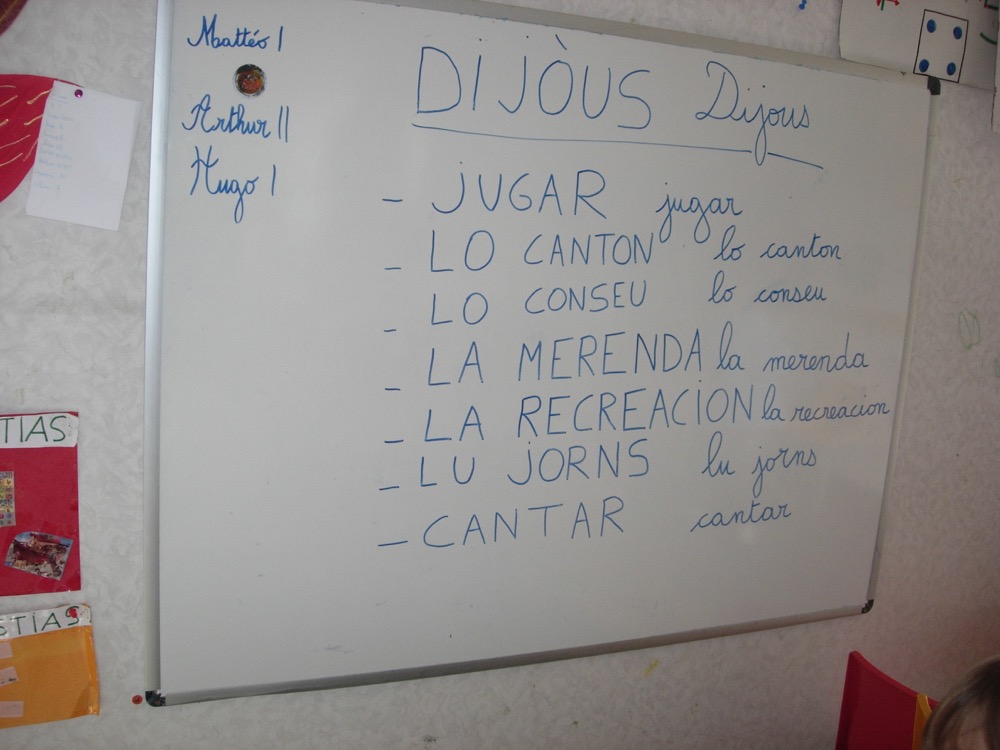 Mattéo |
Arthur ||
Hugo |
DIJÒUS Dijous
- JUGAR jugar
- LO CANTON lo canton
- LO CONSEU lo conseu
- LA MERENDA la merenda
- LA RECREACION la recreacion
- LU JORNS lu jorns
- CANTAR cantar
TIAS
STIAS